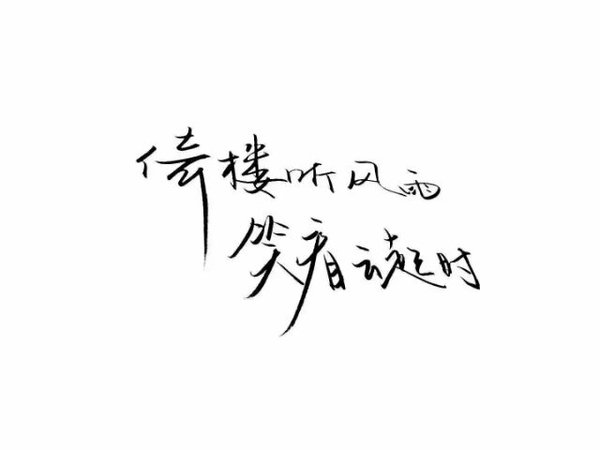 倚楼听风雨
笑看云起时